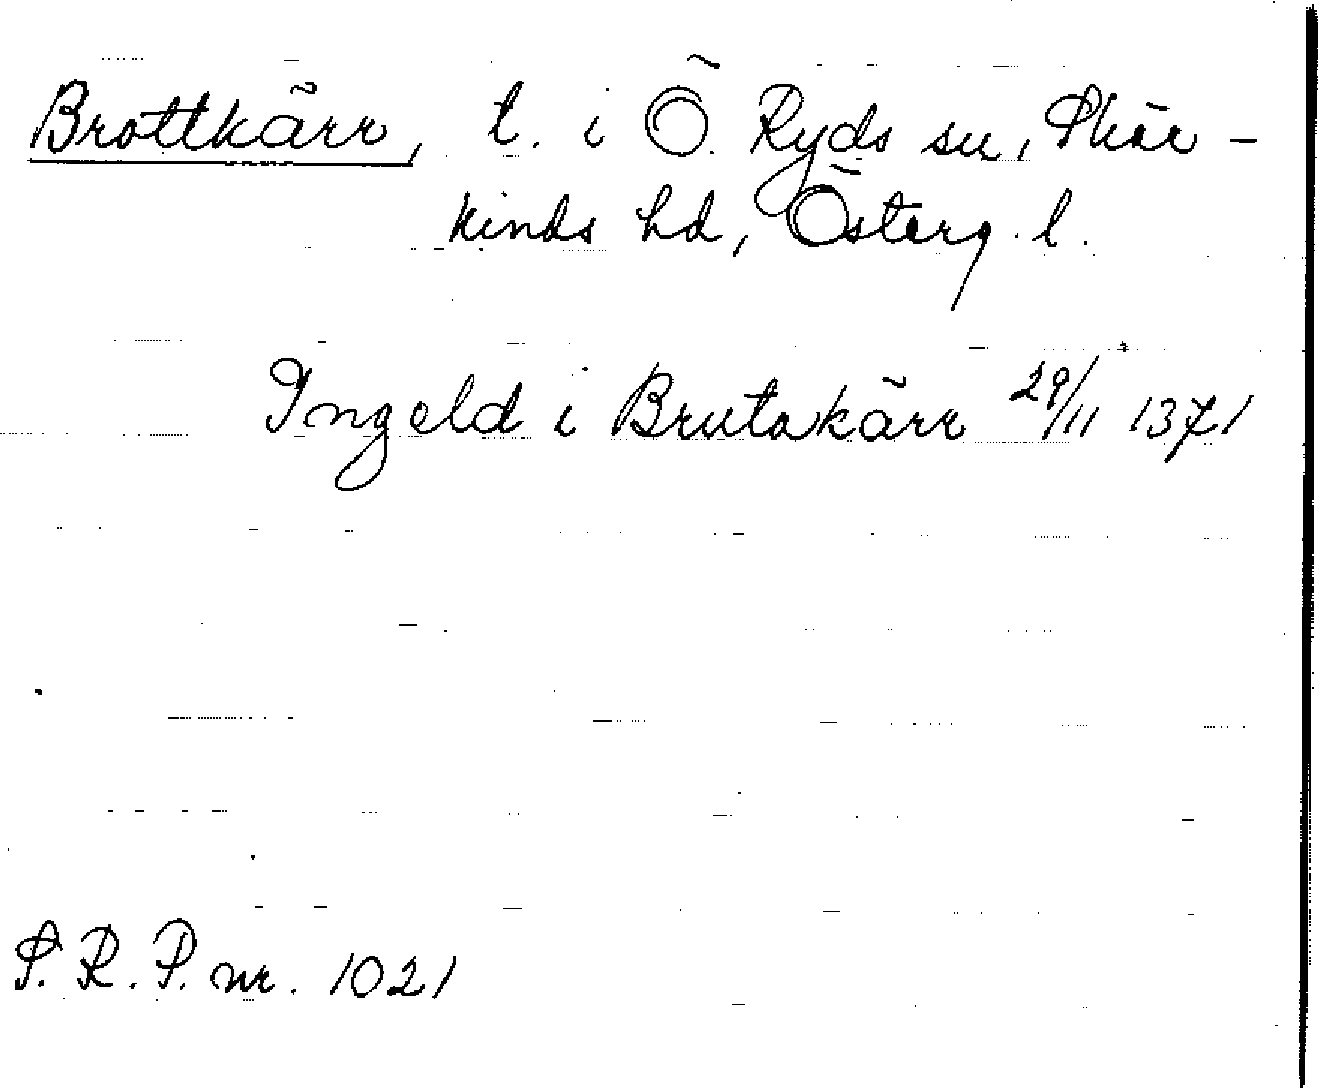 Brottkärr, t. i Ö. Ryds sn, Skär-
kinds hd, Österg. l.
Ingeld i Brutakärr 29/11 1371
S.R.P. nr. 1021